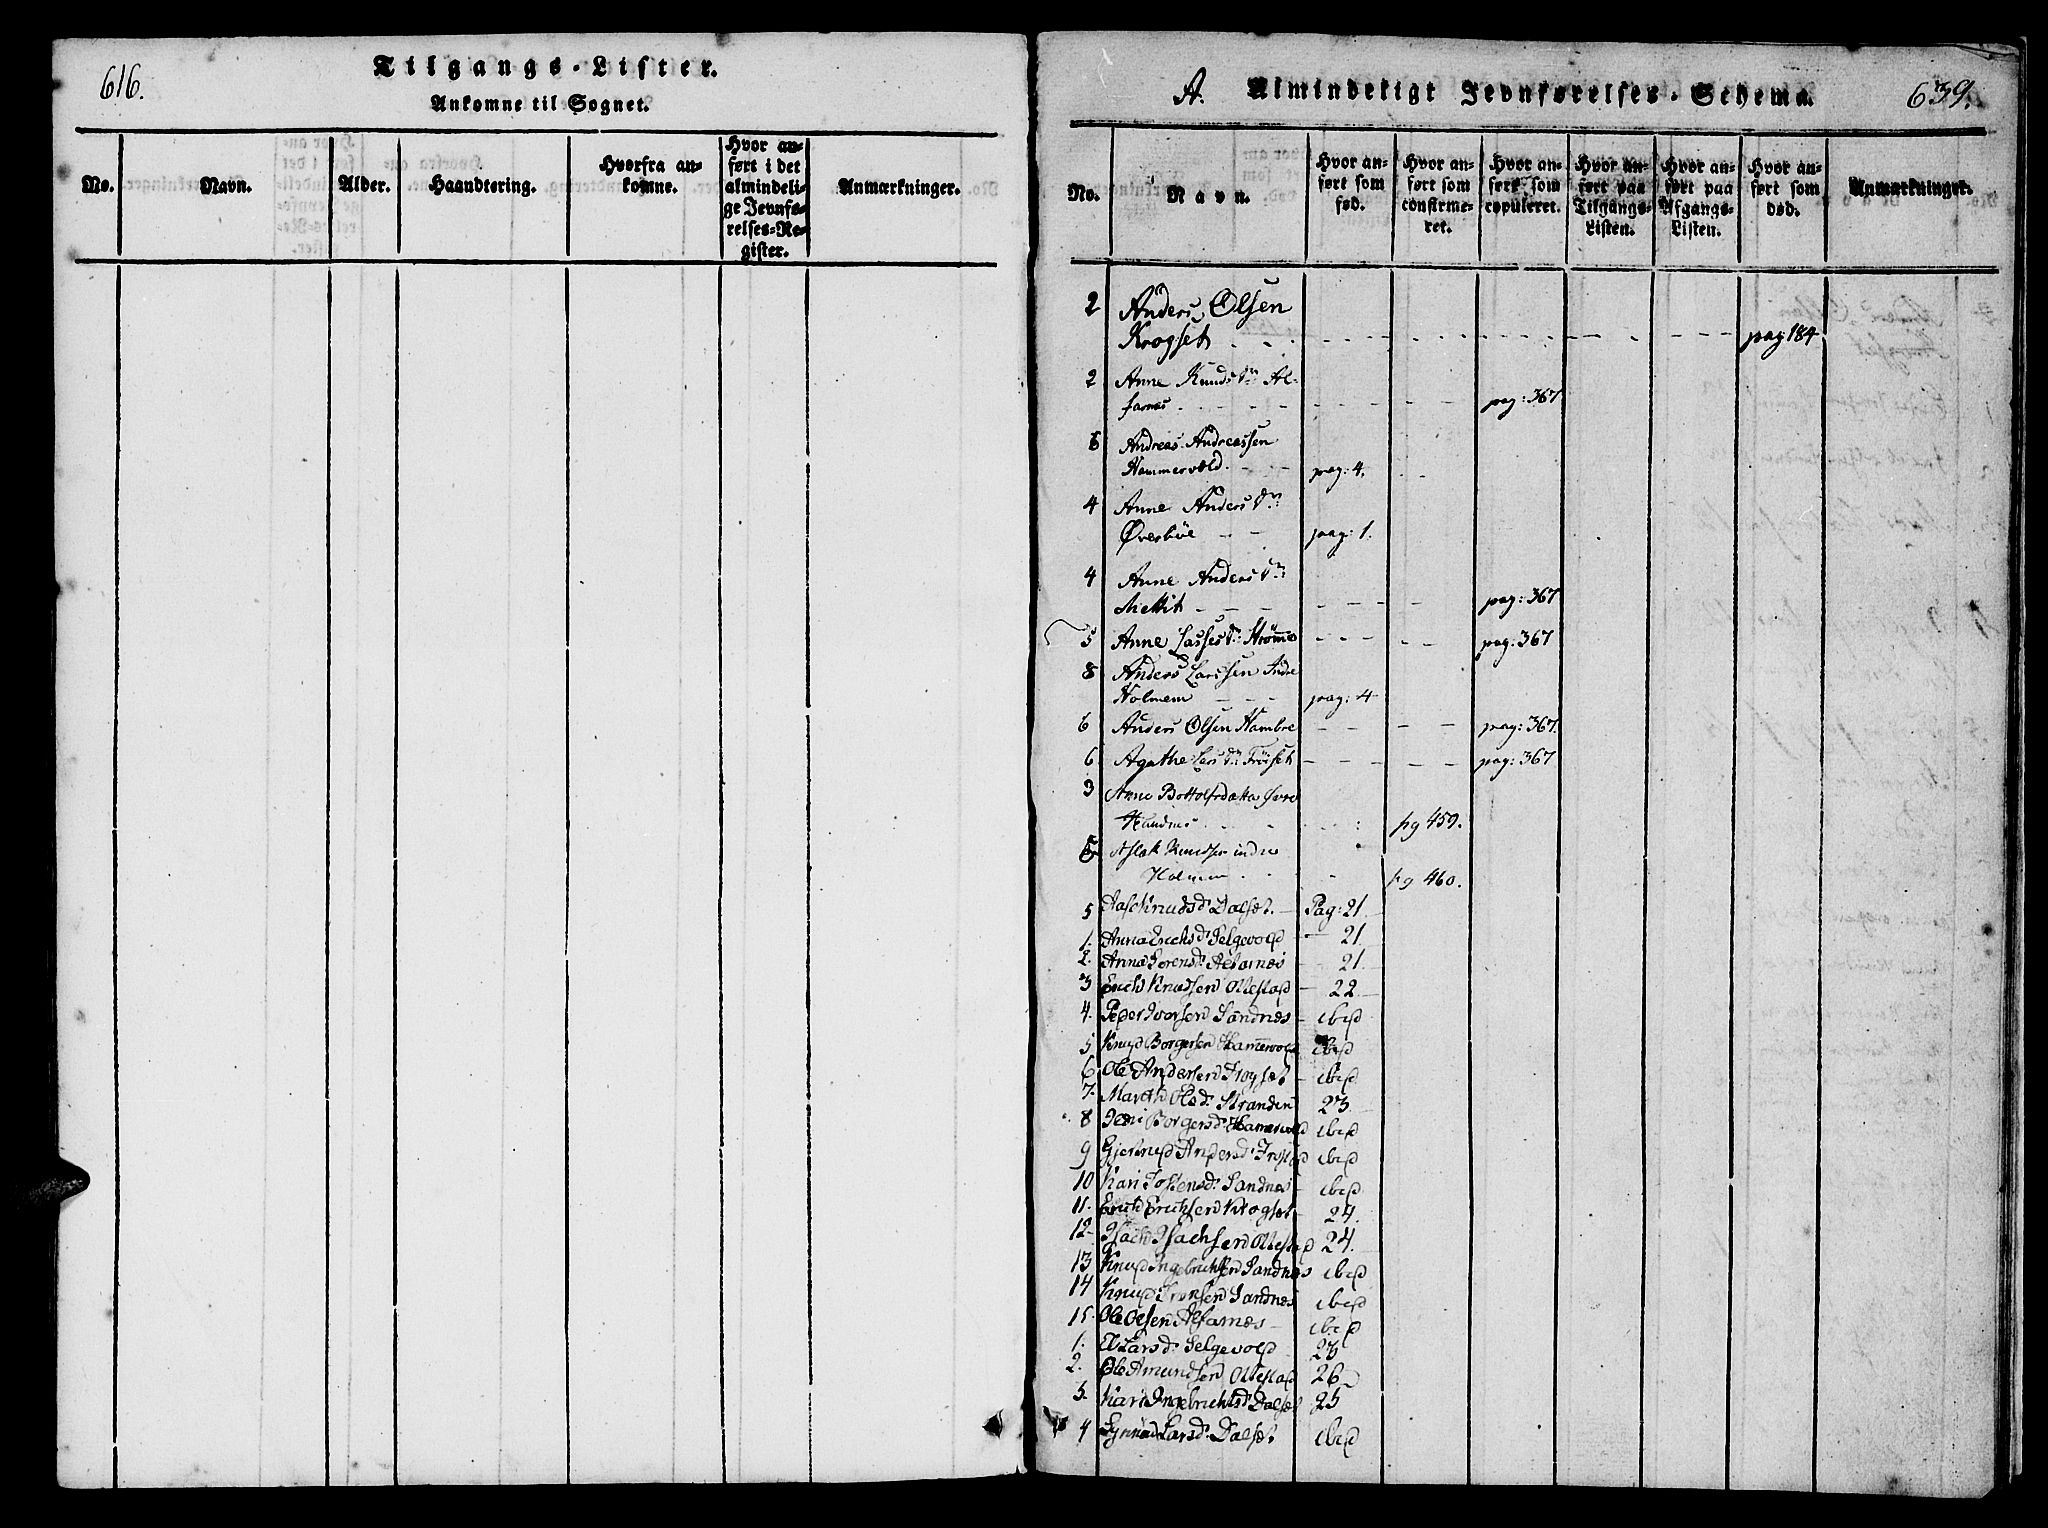 616.
Tilgangs-Lister.
Ankomne til Sognet.
No.
Navn.
Alder.
Haandtering.
Hvorfra an-
komne.
Hvor an-
ført i det
almindeli-
ge Jevnfø-
relses-Re-
gister.
Anmærkninger.
A. Almindeligt Jevnførelses-Schema. 639.
No.
Navn.
Hvor an-
ført som
fød.
Hvor an-
ført som
confirme-
ret.
Hvor an-
ført som
copuleret.
Hvor an-
ført paa
Tilgangs-
Listen.
Hvor an-
ført paa
Afgangs-
Listen.
Hvor an-
ført som
død.
Anmærkninger.
2 Anders Olsen
Krogset pag 184
2 Anne Knudsdr: Al-
farnes pag: 367
6 Andreas Andreassen
Hammervold pag: 4.
4 Anne Andersdr:
Øverbøe pag: 1.
4 Anne Andersdr:
pag: 367
5 Anne Lassesdr: Strømme pag: 367
8 Anders Larssen Indre
Holmem pag: 4
6 Anders Olsen Hambre pag: 367.
6 Agathe Larsdr: Frøiset pag: 367
3 Anne Bottolfsdatter
pg 459.
5 Aslak Knudsen indre
Holmem pg 460.
5 Knudsd: Dalset Pag: 21
1. Anna Erichsd: Selgevold 21
2. Anne Sorensd: Alfarnes 21
3 Erich Knudsen Ottestad 22
4. Peder Ivarsen Sandnes ibid
5 Knud Borgersen Hamervold ibid
6 Ole Andersen Frøyset ibid
7. Marith Olsd: Stranden 23
8 Borgersd: Hamervold ibid
9 Gjertrud Andersd: ibid
10 Kari Jostensd: Sandnes ibid
11. Erich Erichsen Krogset 24.
12 Isach Isachsen Ottestad 24.
13 Knud Ingebrichtsen Sandnes ibid
14 Knud Iversen Sandnes ibid
15. Ole Olsen Alfarnes ibid
1. Larsd: Selgevold 23
2. Ole Amundsen Ottestad 26
3. Kari Ingebrichtsd: Dalset 25
4 Synnød Larsd: Dalset ibid